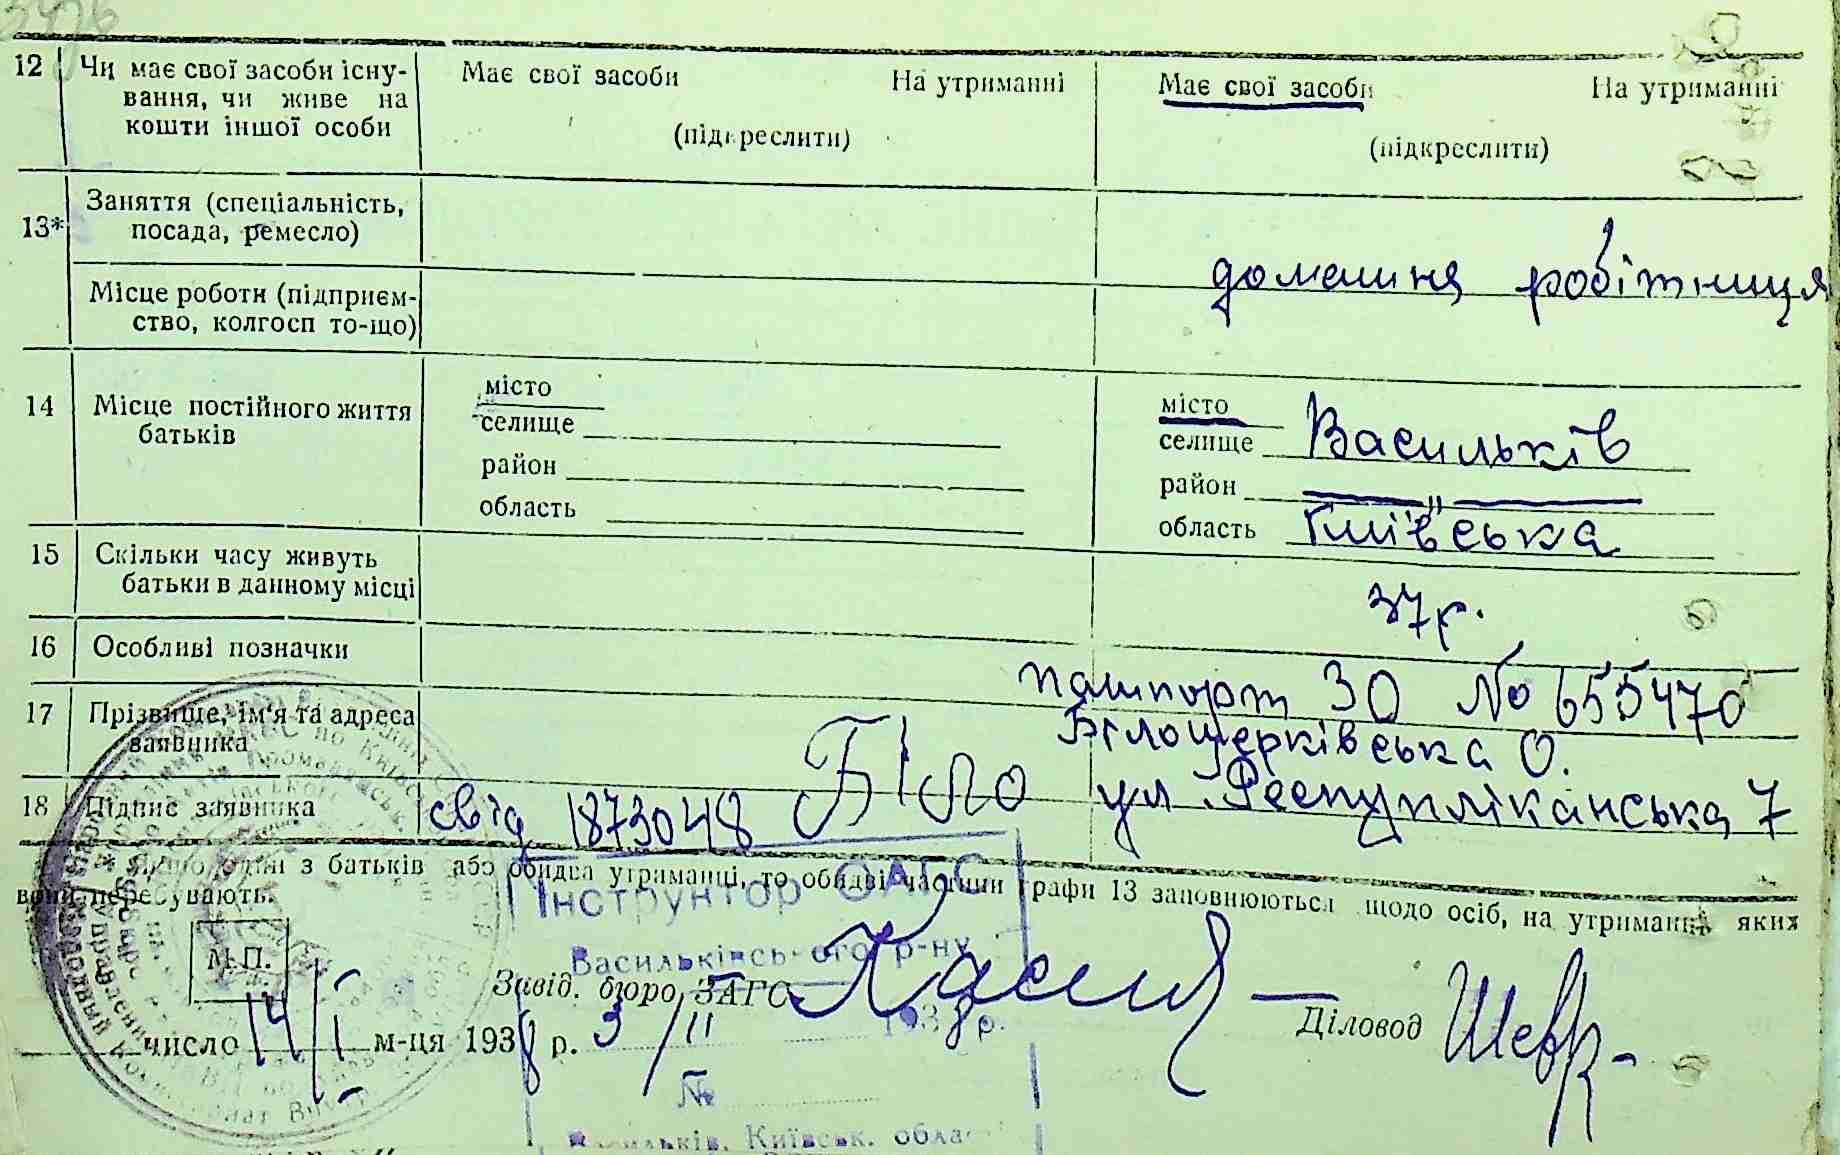 12 Чи має свої засоби існу-
вання, чи живе на
кошти іншої особи
Має свої засоби На утриманні
(підкреслити)
Має свої засоби На утриманні
(підкреслити)
13* Заняття (спеціальність,
посада, ремесло)
Місце роботи (підприєм-
ство, колгосп то-що)
домашня робітниця
14 Місце постійного життя
батьків
місто
селище
район
область
місто
селище Васильків
район — „ —
область Київська
15 Скільки часу живуть
батьки в данному місці
37 р.
16 Особливі позначки
пашпорт ЗО № 655470
17 Прізвище, ім'я та адреса
заявника
Білоцерківська О.
18 Підпис заявника
свід 1873048 Біло ул Республіканська 7
* Якщо один з батьків або обидва утриманці, то обидві частини графи 13 заповнюються щодо осіб, на утриманні яких
вони перебувають.
Інструктор ОАГС
Васильківського р-ну
М.П.
Завід. бюро ЗАГС
1938 р.
число 14/I м-ця 1938 р. 3/II
Діловод Шевр-
№
Васильків, Київськ. облас